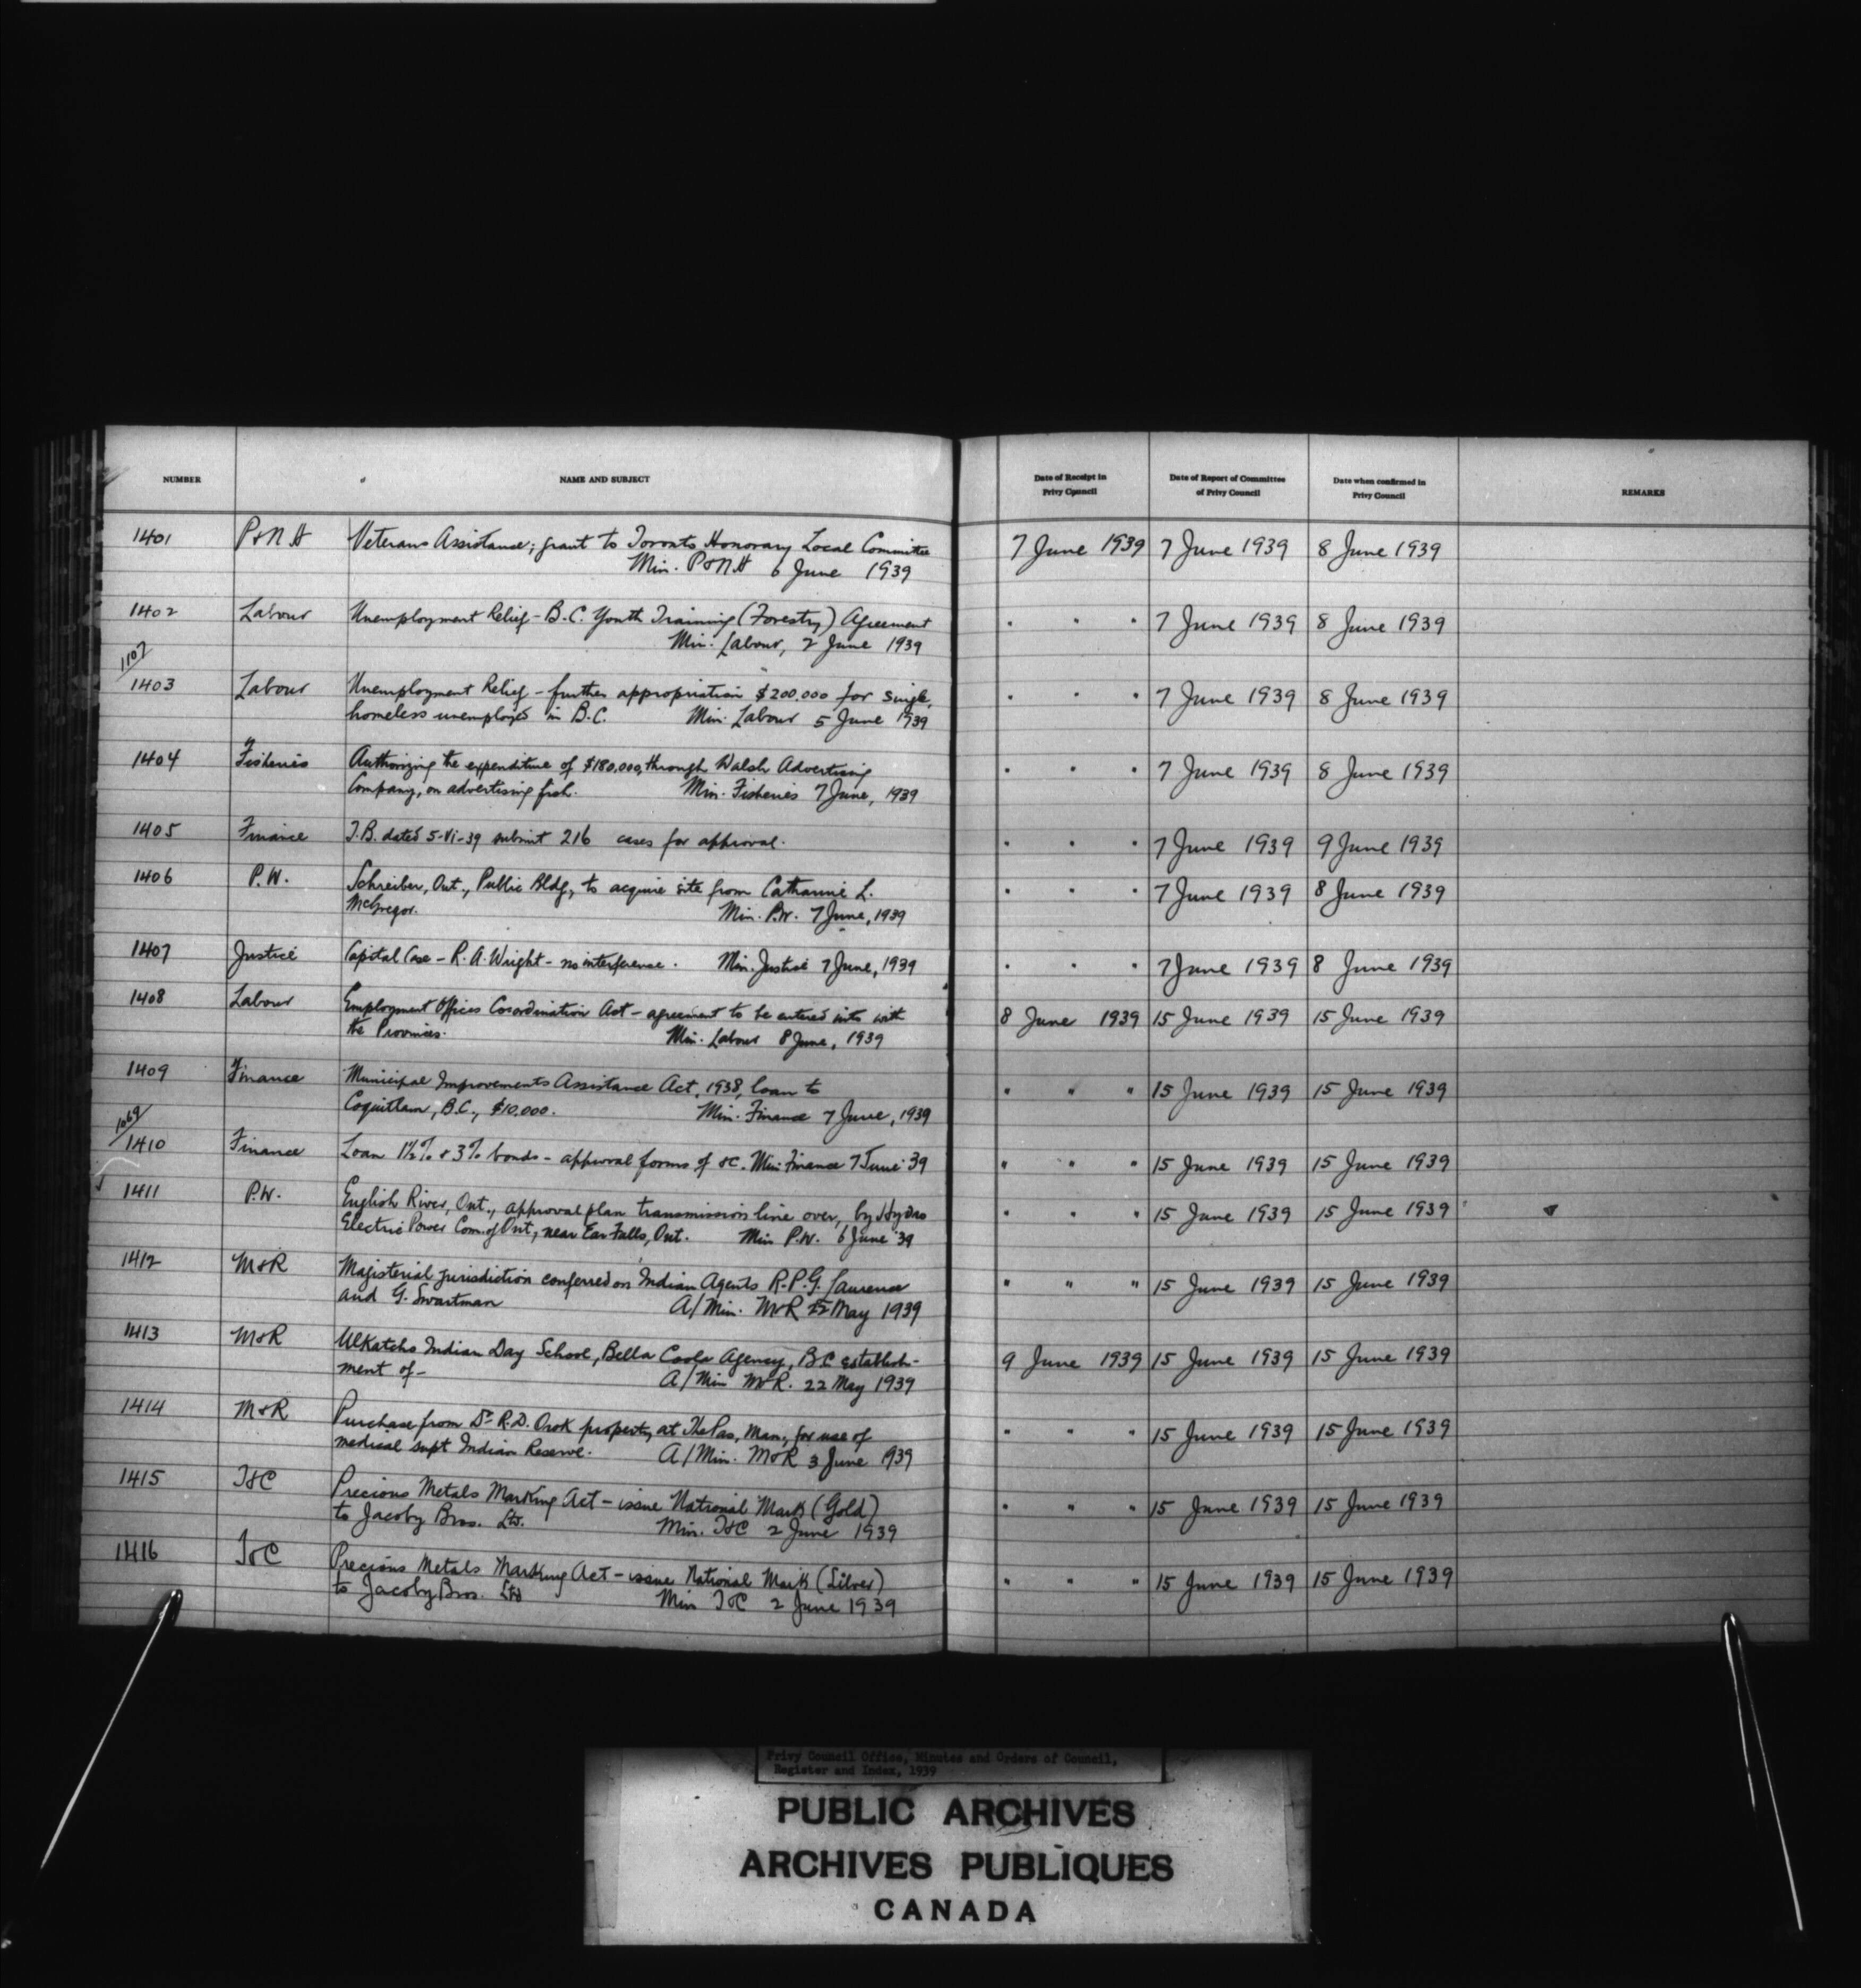 NUMBER NAME AND SUBJECT Date of Receipt in Privy Council Date of Report of Committee of Privy Council Date when confirmed in Privy Council REMARKS
1401 P&NH Veterans Assistance; grant to Toronto Honorary Local Committee 7 June 1939 7 June 1939 8 June 1939
Min. P&NH 6 June 1939
1402 Labour Unemployment Relief - B.C. Youth Training (Forestry) Agreement " " " 7 June 1939 8 June 1939
Min. Labour, 2 June 1939
1107/
1403 Labour Unemployment Relief - further appropriation $200.000 for single, " " " 7 June 1939 8 June 1939
homeless unemployed in B.C. Min. Labour 5 June 1939
1404 Fisheries Authorizing the expenditure of $180,000, through Walsh Advertising " " " 7 June 1939 8 June 1939
Company, on advertising fish. Min. Fisheries 7 June, 1939
1405 Finance T.B. dated 5-VI-39 submit 216 cases for approval. " " " 7 June 1939 9 June 1939
1406 P.W. Schreiber, Ont., Public Bldg, to acquire site from Catharine L. " " " 7 June 1939 8 June 1939
McGregor. Min. P.W. 7 June, 1939
1407 Justice Capital Case - R. A. Wright - no interference. Min. Justice 7 June, 1939 " " " 7 June 1939 8 June 1939
1408 Labour Employment Offices Coordination Act - agreement to be entered into with 8 June 1939 15 June 1939 15 June 1939
the Provinces. Min. Labour 8 June, 1939
1409 Finance Municipal Improvements Assistance Act, 1938, loan to " " " 15 June 1939 15 June 1939
Coquitlam, B.C., $10.000. Min. Finance 7 June, 1939
1069/
1410 Finance Loan 1½% & 3% bonds - approval forms of &c. Min. Finance 7 June '39 " " " 15 June 1939 15 June 1939
1411 P.W. English River, Ont., approval plan transmission line over, by Hydro " " " 15 June 1939 15 June 1939
Electric Power Com. of Ont., near Ear Falls, Ont. Min P.W. 6 June '39
1412 M&R Magisterial jurisdiction conferred on Indian Agents R.P.G. Laurence " " " 15 June 1939 15 June 1939
and G. Swartman A/Min. M&R 22 May 1939
1413 M&R Ulkatcho Indian Day School, Bella Coola Agency, B.C. establish- 9 June 1939 15 June 1939 15 June 1939
ment of - A/Min M&R. 22 May 1939
1414 M&R Purchase from Dr R.D. Orok property at The Pas, Man., for use of " " " 15 June 1939 15 June 1939
medical supt Indian Reserve. A/Min. M&R 3 June 1939
1415 T&C Precious Metals Marking Act - issue National Mark (Gold) " " " 15 June 1939 15 June 1939
to Jacoby Bros. Ltd. Min. T&C 2 June 1939
1416 T&C Precious Metals Marking Act - issue National Mark (Silver) " " " 15 June 1939 15 June 1939
to Jacoby Bros. Ltd Min T&C 2 June 1939
Privy Council Office, Minutes and Orders of Council,
Register and Index, 1939
PUBLIC ARCHIVES
ARCHIVES PUBLIQUES
CANADA